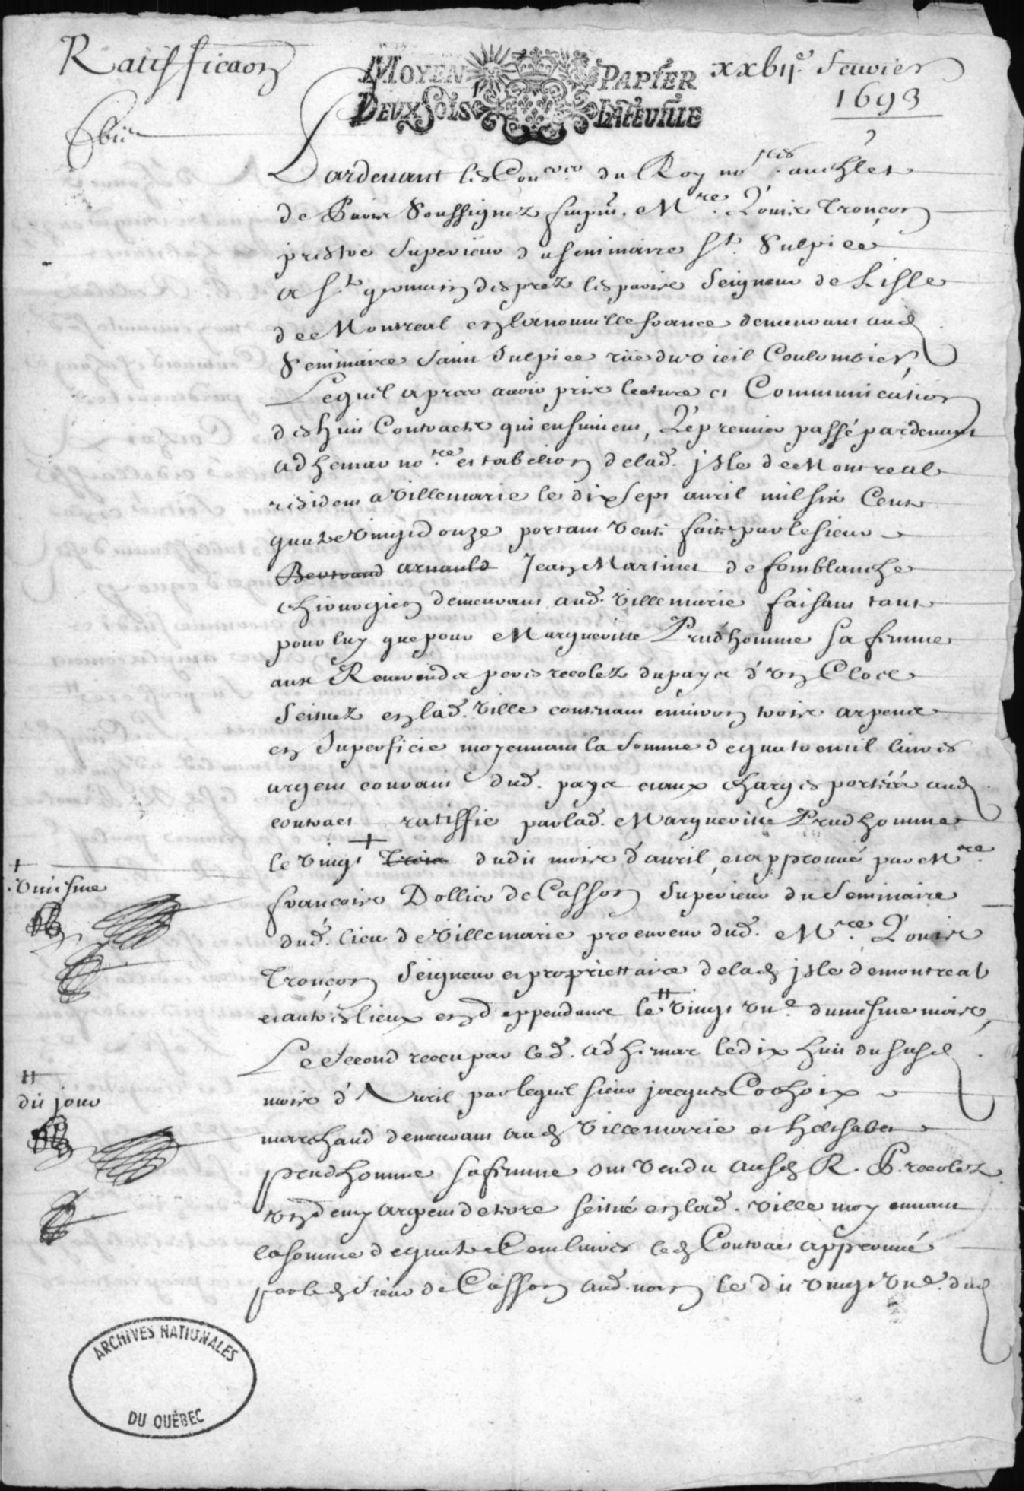 Ratifficaon
MOYEN PAPIER
DEUX SOLS LA FEUILLE
xxbije feurier
1693
Pardeuant les Coners du Roy nores au chlet
de Paris Soussignez fut pnt Mre Louis Tronçon
prestre Superieur du seminaire St Sulpice
a St germain des prez les paris Seigneur de Lisle
de Montreal en la nouuelle france demeurant aud
Seminaire Saint Sulpice rüe du vieil Coulombier,
Lequel apres auoir pris lecture et Communication
des huit Contracts qui ensuiuent, Le premier passé pardeuant
adhemar nore et tabelion de lad. jsle de Montreal
resident a Villemarie le dix sept auril mil six Cent
quatre vingt douze portant vente faite par le sieur
Bertrand arnauld Jean Martinet de fomblanche
chirurgien demeurant aud. Villemarie faisant tant
pour luy que pour Margueritte Prudhomme sa femme
aux Reuerends peres recolez du pays d'vn Clos
scituez en lad. ville contenant enuiron trois arpens
en superficie moyennant la somme de quatre mil liures
argent courant dud. pays et aux charges portées aud
contract ratiffié par lad. Margueritte Prudhomme
le vingt trois dudit mois d'auril, et approuué par Mre
+
vniesme
françois Dollier de Casson Superieur du Seminaire
dud. lieu de Villemarie procureur dud. Mre Louis
Tronçon Seigneur et proprietaire de lad jsle de montreal
et autres lieux en dependans le vingt vne du mesme mois,
Le Second receu par led. adhemar le dix huit du susd
++
dit jour
mois d'Auril par lequel sieur jacques Cochois
marchand demeurant aud Villemarie et Helisabet
prudhomme sa femme ont vendu ausd R. P. recolez
vn demy arpent de terre scitué en lad. ville moyennant
la somme de quatre Cent liures led Contract approuué
par led sieur de Casson aud. nom le dit vingt vne dud
ARCHIVES NATIONALES
DU QUÉBEC